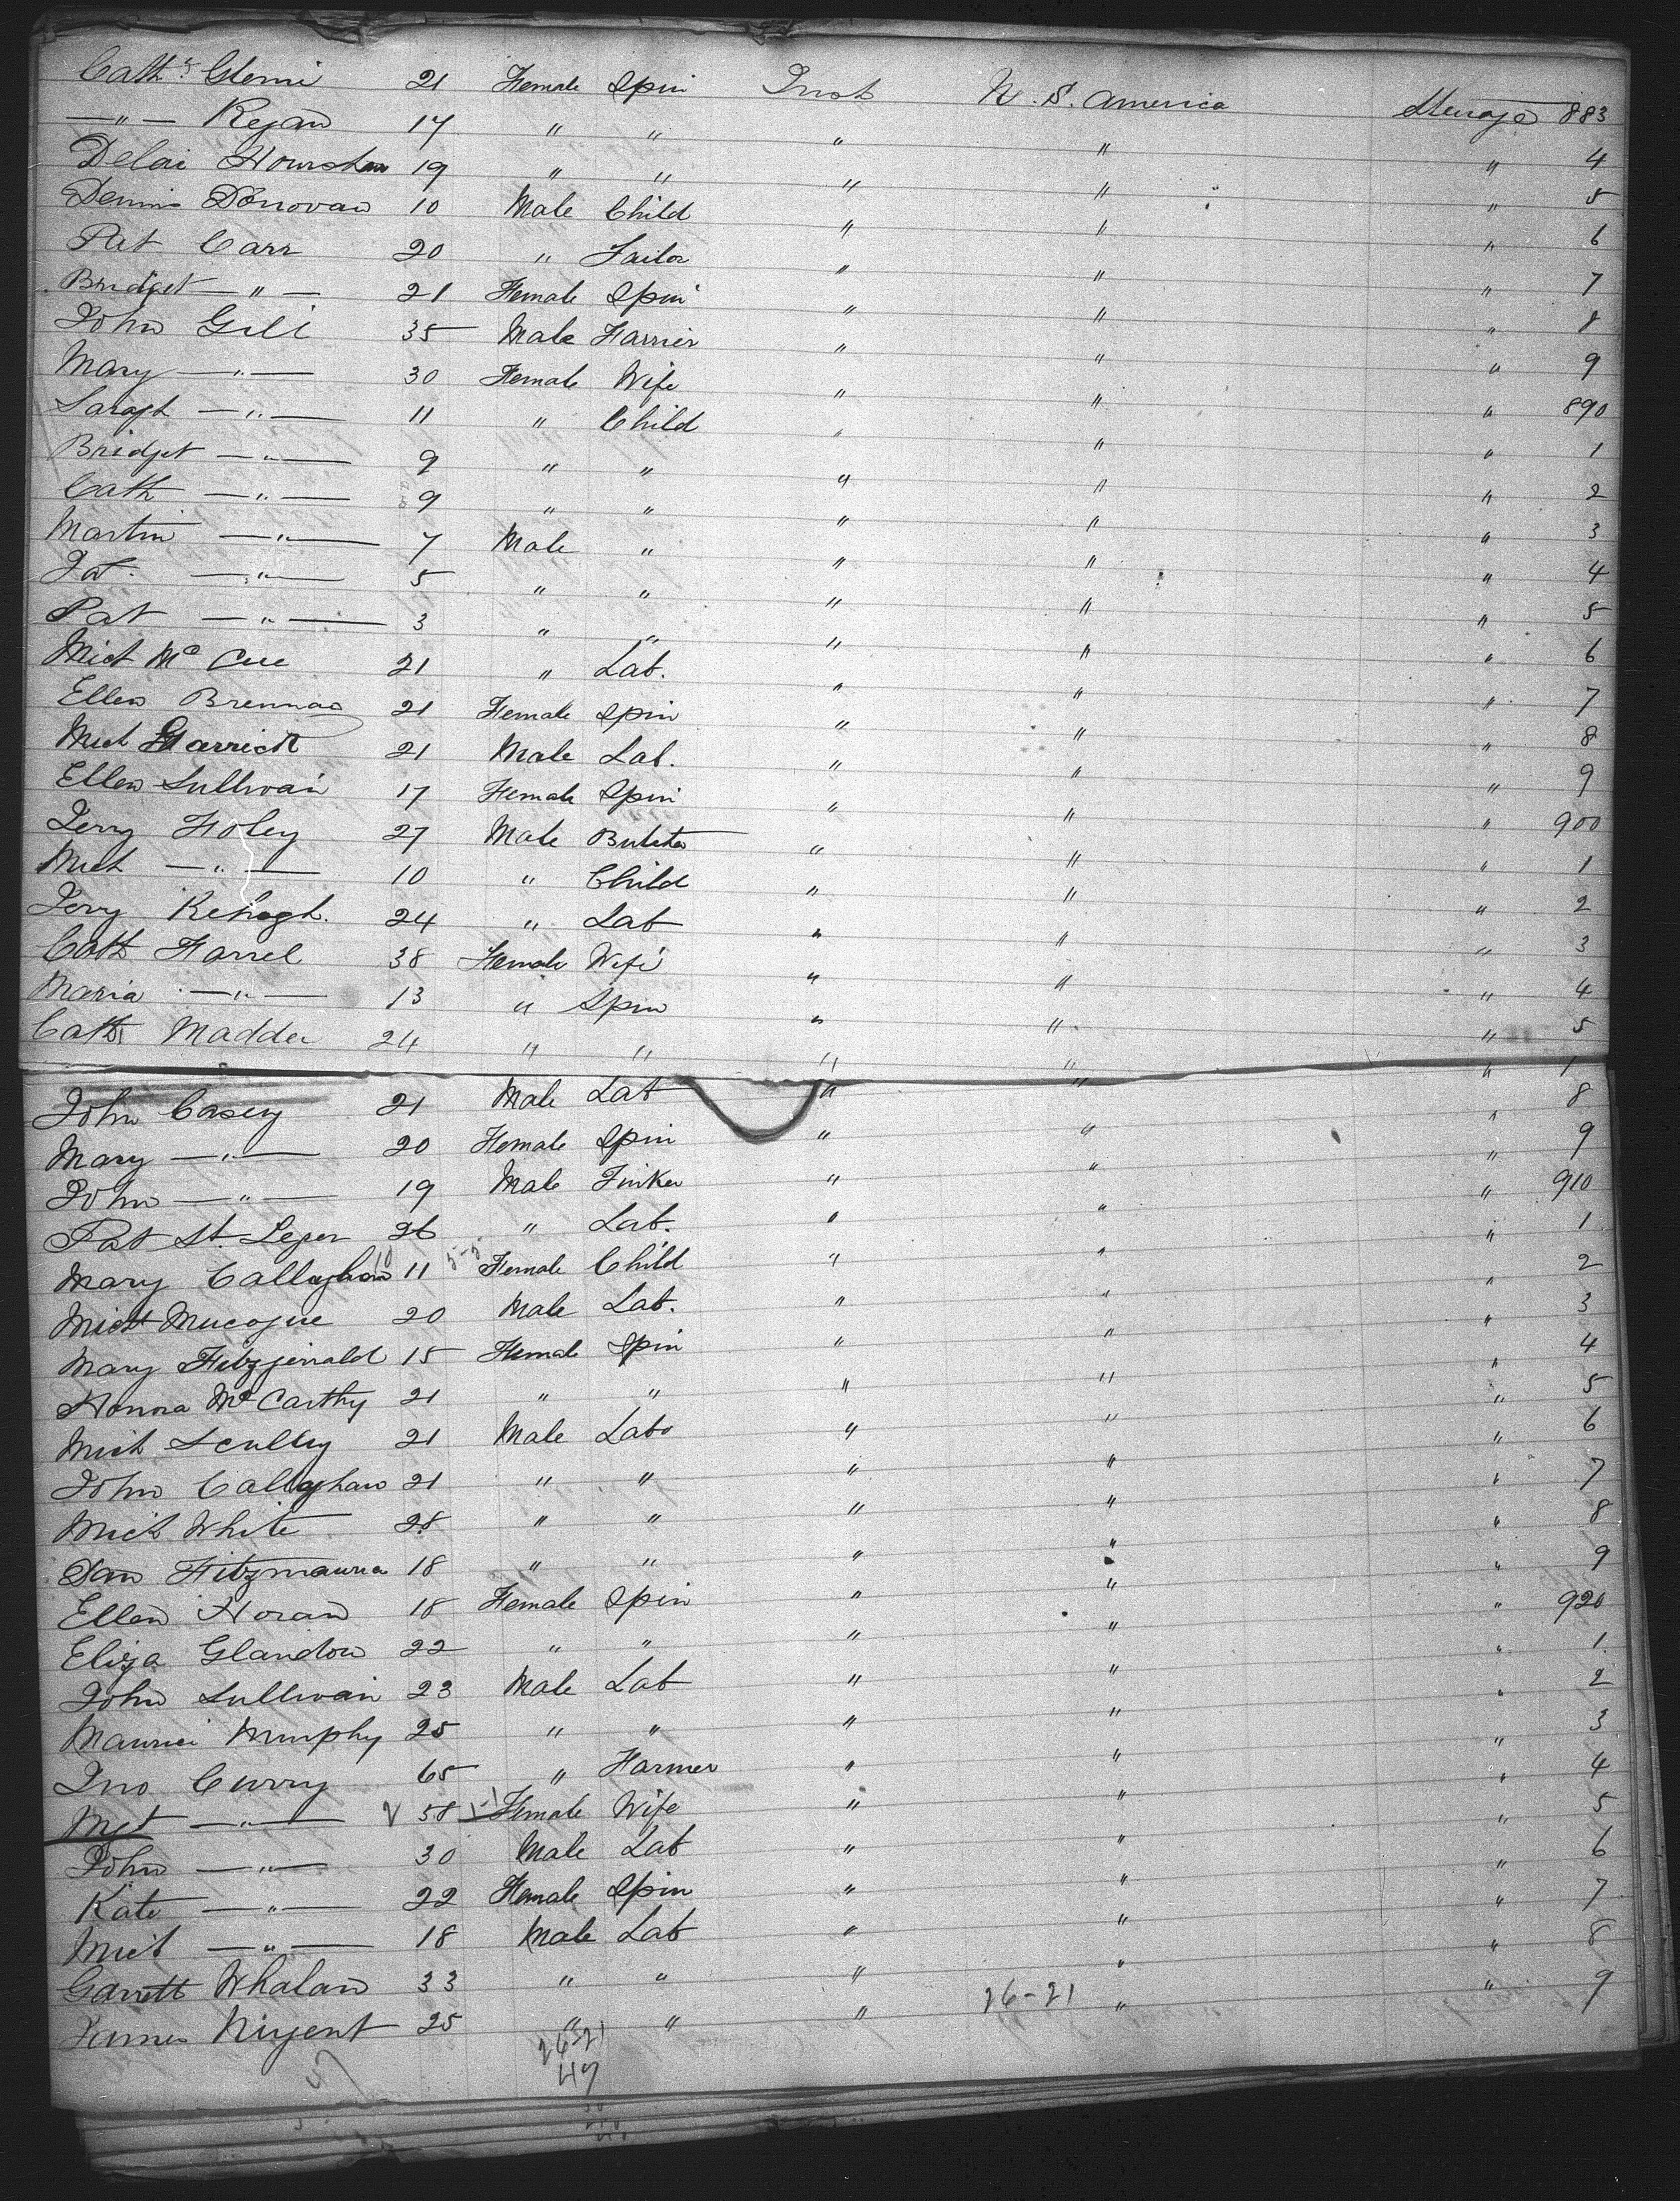 Cath Glenni 21 Female Spin Irish U. S. America Steerage 883
—"— Regan 17 " " " " " 4
Delai Hourohan 19 " " " " " 5
Dennis Donovan 10 Male Child " " " 6
Pat Carr 20 " Tailor " " " 7
Bridget —"— 21 Female Spin " " " 8
John Gill 35 Male Farrier " " " 9
Mary —"— 30 Female Wife " " " 890
Saragh —"— 11 " Child " " " 1
Bridget —"— 9 " " " " " 2
Cath —"— 9 " " " " " 3
Martin —"— 7 Male " " " " 4
Pat. —"— 5 " " " " " 5
Pat —"— 3 " " " " " 6
Mich Mc Cue 21 " Lab. " " " 7
Ellen Brennan 21 Female Spin " " " 8
Mich Garrick 21 Male Lab. " " " 9
Ellen Sullivan 17 Female Spin " " " 900
Jerry Foley 27 Male Butcher " " " 1
Mich —"— 10 " Child " " " 2
Jerry Kehogh. 24 " Lab " " " 3
Cath Farrel 38 Female Wife " " " 4
Maria —"— 13 " Spin " " " 5
Cath Madden 24 " " " " "
John Casey 21 Male Lab " " " 8
Mary —"— 20 Female Spin " " " 9
John —"— 19 Male Tinker " " " 910
Pat St. Leger 26 " Lab. " " " 1
Mary Callaghan 10 11 5-5 Female Child " " " 2
Mich Mucogue 20 Male Lab. " " " 3
Mary Fitzgerald 15 Female Spin " " " 4
Honora Mc Carthy 21 " " " " " 5
Mich Sculley 21 Male Labo " " " 6
John Callaghan 21 " " " " " 7
Mich White 28 " " " " " 8
Dan Fitzmaurice 18 " " " " " 9
Ellen Horan 18 Female Spin " " " 920
Eliza Glandon 22 " " " " " 1
John Sullivan 23 Male Lab " " " 2
Maurice Murphy 25 " " " " " 3
Jno Curry 65 " Farmer " " " 4
Mgt —"— 58 Female Wife " " " 5
John —"— 30 Male Lab " " " 6
Kate —"— 22 Female Spin " " " 7
Mich —"— 18 Male Lab " " " 8
Garrett Whalan 33 " " " " " 9
James Nugent 25 " " " 26-21 "
26-21
47